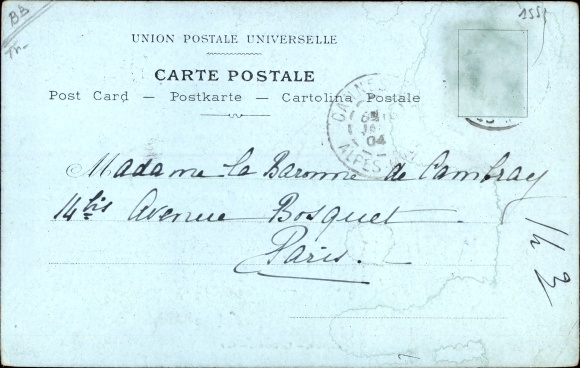 BB
155
UNION POSTALE UNIVERSELLE
CARTE POSTALE
Post Card — Postkarte — Cartolina Postale
CANNES
04
ALPES
Madame la Baronne de Cambray
14 bis Avenue Bosquet
Paris.